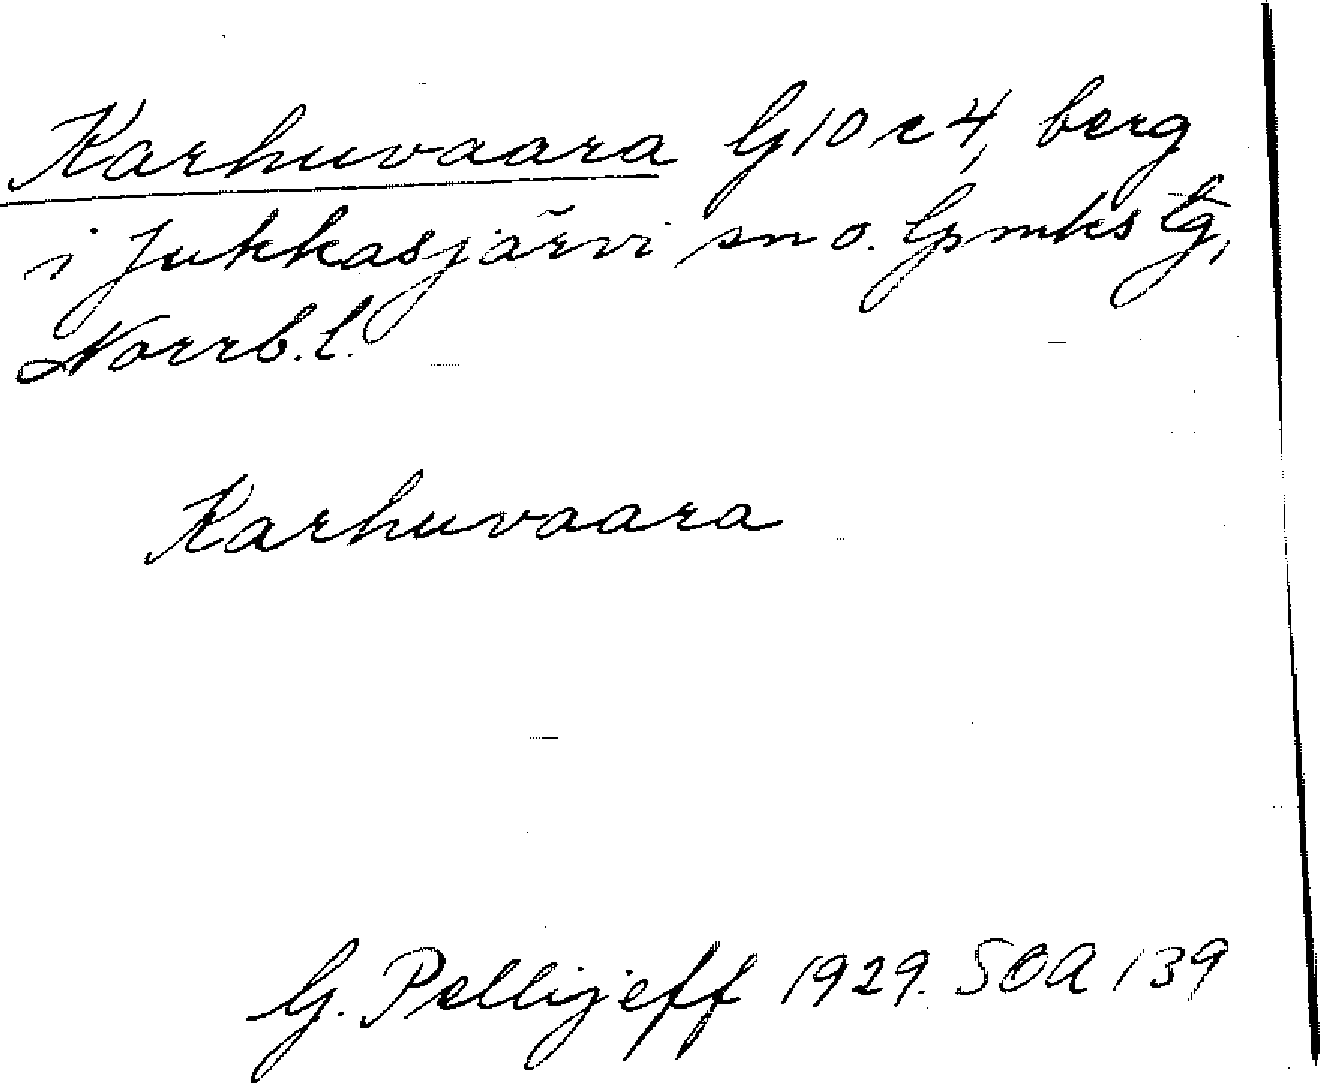 Karhuvaara G10c4, berg
i Jukkasjärvi sn o. Gmks tg,
Norrb. l.
Karhuvaara
G. Pellijeff 1929. SOA 139